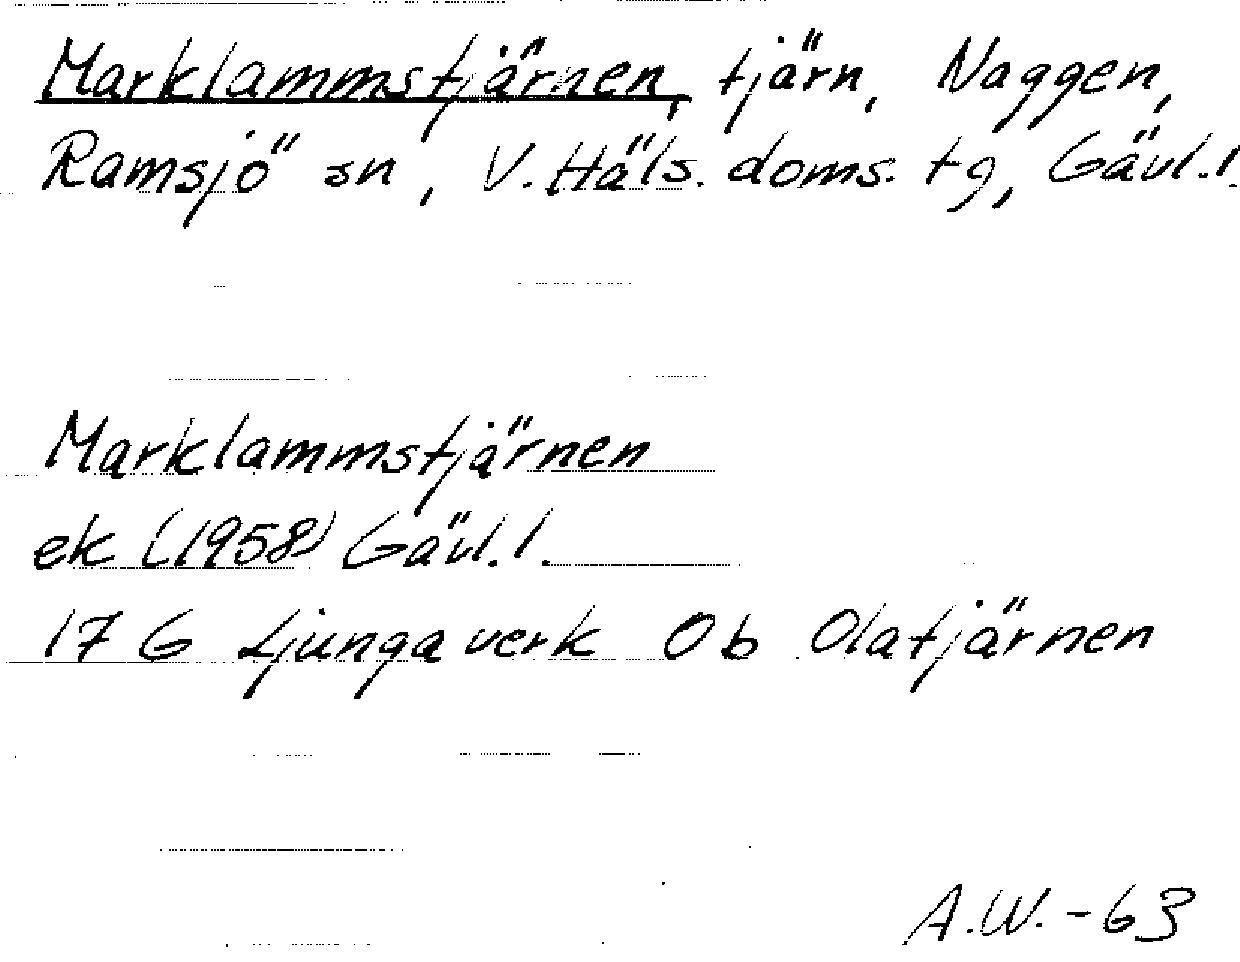 Marklammstjärnen, tjärn, Naggen,
Ramsjö sn, V. Häls. doms. tg, Gävl. l.
Marklammstjärnen
ek (1958) Gävl. l.
17 G Ljungaverk Ob Olatjärnen
A.W. -63